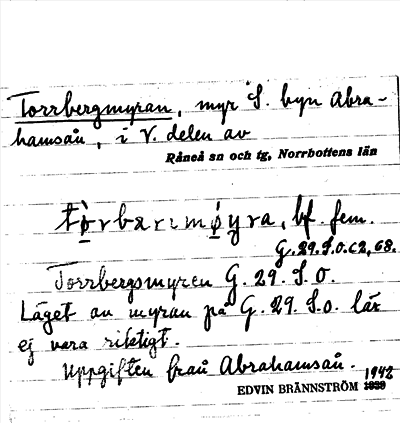 Torrbergmyran, myr S. byn Abra-
hamsån, i V. delen av
Råneå sn och tg, Norrbottens län
tòrbærımǿyra, bf. fem.
G. 29. S.O. C2, 68.
Torrbergsmyren G. 29. S.O.
Läget av myran på G. 29. S.o. lär
ej vara riktigt.
Uppgiften från Abrahamsån.
1942
EDVIN BRÄNNSTRÖM 1939